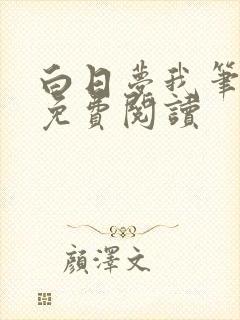 白日夢我筆
免費閱讀
顏澤文